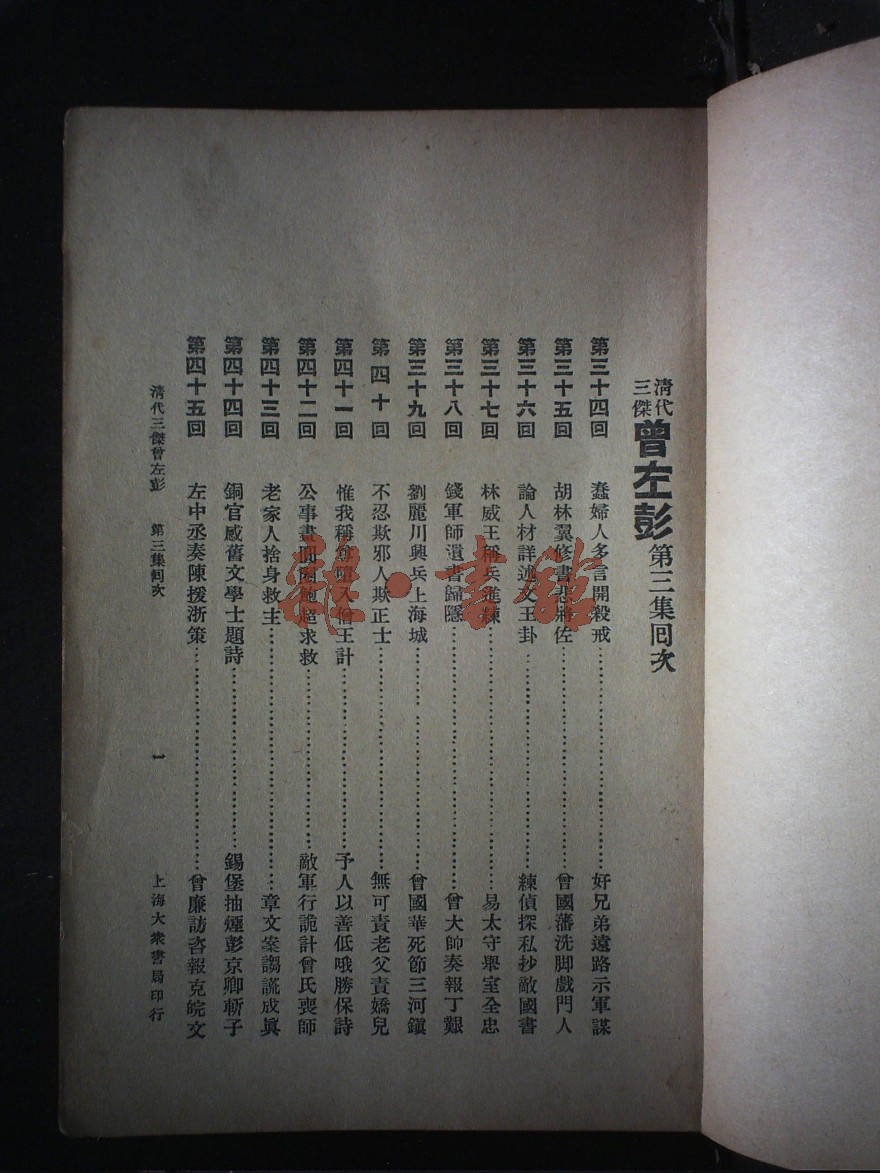 清代三傑曾左彭第三集囘次
第三十四囘　蠢婦人多言開殺戒……好兄弟遠路示軍謀
第三十五囘　胡林翼修書悲將佐……曾國藩洗脚戲門人
第三十六囘　論人材詳述文王卦……練偵探私抄敵國書
第三十七囘　林威王稱兵進練……易太守舉室全忠
第三十八囘　錢軍師遺書歸隱……曾大帥奏報丁艱
第三十九囘　劉麗川興兵上海城……曾國華死節三河鎭
第四十囘　不忍欺邪人欺正士……無可責老父責嬌兒
第四十一囘　惟我稱尊墮入僧王計……予人以善低哦勝保詩
第四十二囘　公事畫圓圈鮑超求救……敵軍行詭計曾氏喪師
第四十三囘　老家人捨身救主……章文案謅謊成眞
第四十四囘　銅官感舊文學士題詩……錫堡抽煙彭京卿斬子
第四十五囘　左中丞奏陳援浙策……曾廉訪咨報克皖文
清代三傑曾左彭　第三集囘次　一　上海大衆書局印行
雜·書館